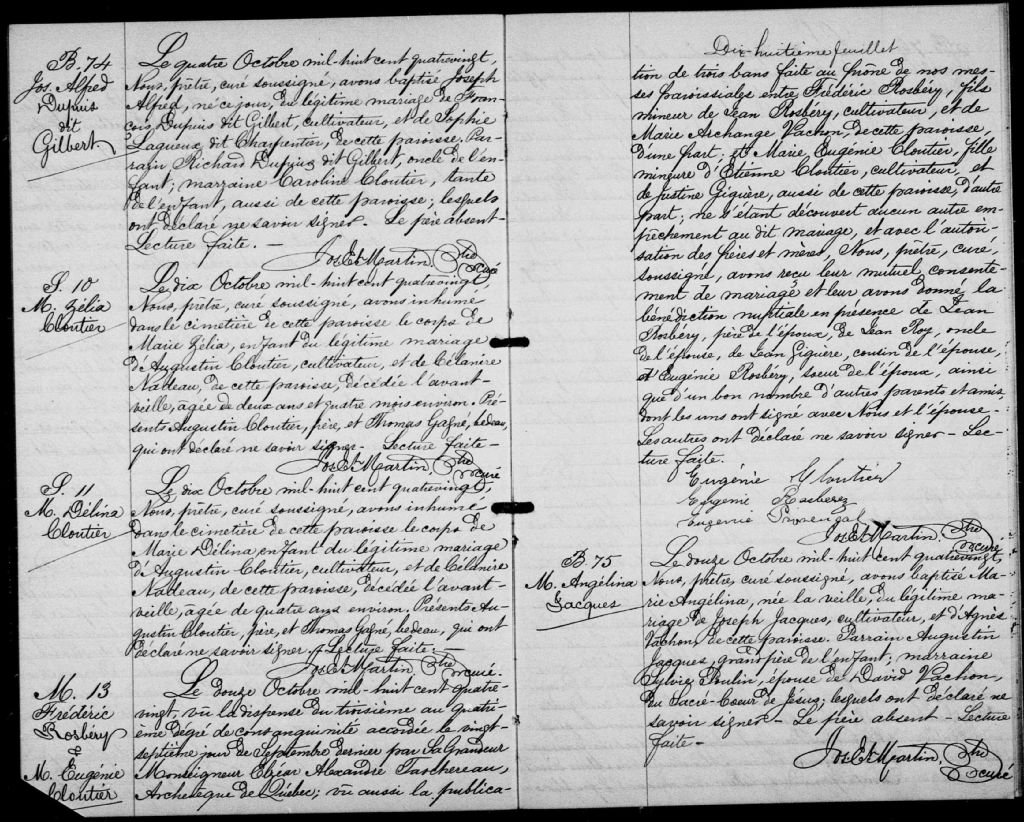 B. 74
Jos. Alfred
Dupuis
dit
Gilbert
Le quatre Octobre mil-huit cent quatrevingt,
Nous, prêtre, curé soussigné, avons baptisé Joseph
Alfred, né ce jour, du légitime mariage de Fran-
çois Dupuis dit Gilbert, cultivateur, et de Sophie
Lagueux dit Charpentier, de cette paroisse. Par-
rain Richard Dupuis dit Gilbert, oncle de l'en-
fant; marraine Caroline Cloutier, tante
de l'enfant, aussi de cette paroisse; lesquels
ont déclaré ne savoir signer. Le père absent-
Lecture faite. -
Jos. Et. Martin, Ptre
Curé
S. 10
M. Zélia
Cloutier
Le dix Octobre mil-huit cent quatrevingt,
Nous, prêtre, curé soussigné, avons inhumé
dans le cimetière de cette paroisse le corps de
Marie Zélia, enfant du légitime mariage
d'Augustin Cloutier, cultivateur, et de Célanire
Nadeau, de cette paroisse, décédée l'avant-
veille, agée de deux ans et quatre mois environ. Pré-
sents Augustin Cloutier, père, et Thomas Gagné, bedeau,
qui ont déclaré ne savoir signer- Lecture faite-
Jos. Et. Martin, Ptre
Curé
S. 11
M. Délina
Cloutier
Le dix Octobre mil-huit cent quatrevingt,
Nous, prêtre, curé soussigné, avons inhumé
dans le cimetière de cette paroisse le corps de
Marie Délina, enfant du légitime mariage
d'Augustin Cloutier, cultivateur, et de Célanire
Nadeau, de cette paroisse, décédée l'avant-
veille, agée de quatre ans environ. Présents Au-
gustin Cloutier, père, et Thomas Gagné, bedeau, qui ont
déclaré ne savoir signer. Lecture faite.-
Jos. Et. Martin Ptre
Curé.
M. 13
Frédéric
Rosbéry
&
M. Eugénie
Cloutier
Le douze Octobre mil-huit cent quatre-
vingt, vu la dispense du troisième au quatri-
ème degré de consanguinité accordée le vingt-
septième jour de Septembre dernier par Sa Grandeur
Monseigneur Elzéar Alexandre Taschereau,
Archevêque de Québec; vu aussi la publica-
Dix-huitième feuillet
tion de trois bans faite au prône de nos mes-
ses paroissiales entre Frédéric Rosbéry, fils
mineur de Jean Rosbéry, cultivateur, et de
Marie Archange Vachon de cette paroisse,
d'une part; et Marie Eugénie Cloutier, fille
mineure d'Etienne Cloutier, cultivateur, et
de Justine Giguère, aussi de cette paroisse, d'autre
part; ne s'étant découvert aucun autre em-
pêchement au dit mariage, et avec l'autori-
sation des pères et mères, Nous, prêtre, curé,
soussigné, avons reçu leur mutuel consente-
ment de mariage et leur avons donné la
bénédiction nuptiale en presence de Jean
Rosbéry, père de l'époux, de Jean Roy, oncle
de l'épouse, de Jean Giguère, cousin de l'épouse,
et Eugénie Rosbéry, soeur de l'époux, ainsi
que d'un bon nombre d'autres parents et amis
dont les uns ont signé avec Nous et l'épouse-
Les autres ont déclaré ne savoir signer- Lec-
ture faite.
Eugénie Cloutier
Eugénie Rosberry
Eugenie Provençal
Jos. Et. Martin, Ptre
Curé
B. 75
M. Angélina
Jacques
Le douze Octobre mil-huit cent quatrevingt,
Nous, prêtre, curé soussigné, avons baptisé Ma-
rie Angélina, née la veille, du légitime ma-
riage de Joseph Jacques, cultivateur, et d'Agnès
Vachon, de cette paroisse. Parrain Augustin
Jacques, grand père de l'enfant; marraine
Sylvie Poulin, épouse de David Vachon,
du Sacré-Coeur de Jésus; lesquels ont déclaré ne
savoir signer- Le père absent - Lecture
faite-
Jos. Et. Martin, Ptre
Curé